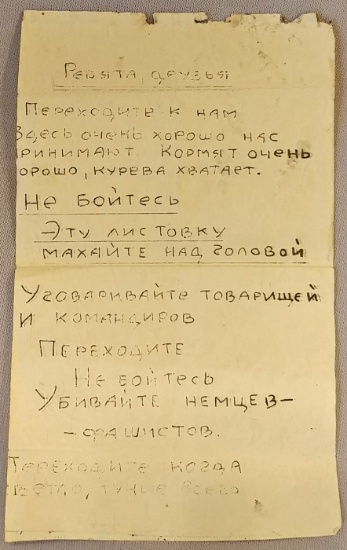 Ребята, друзья
Переходите к нам
Здесь очень хорошо нас
ринимают. Кормят очень
орошо, курева хватает.
Не бойтесь
Эту листовку
махайте над головой
Уговаривайте товарищей
и командиров
Переходите
Не бойтесь
Убивайте немцев-
-фашистов.
Переходите когда
светло, лучше всего